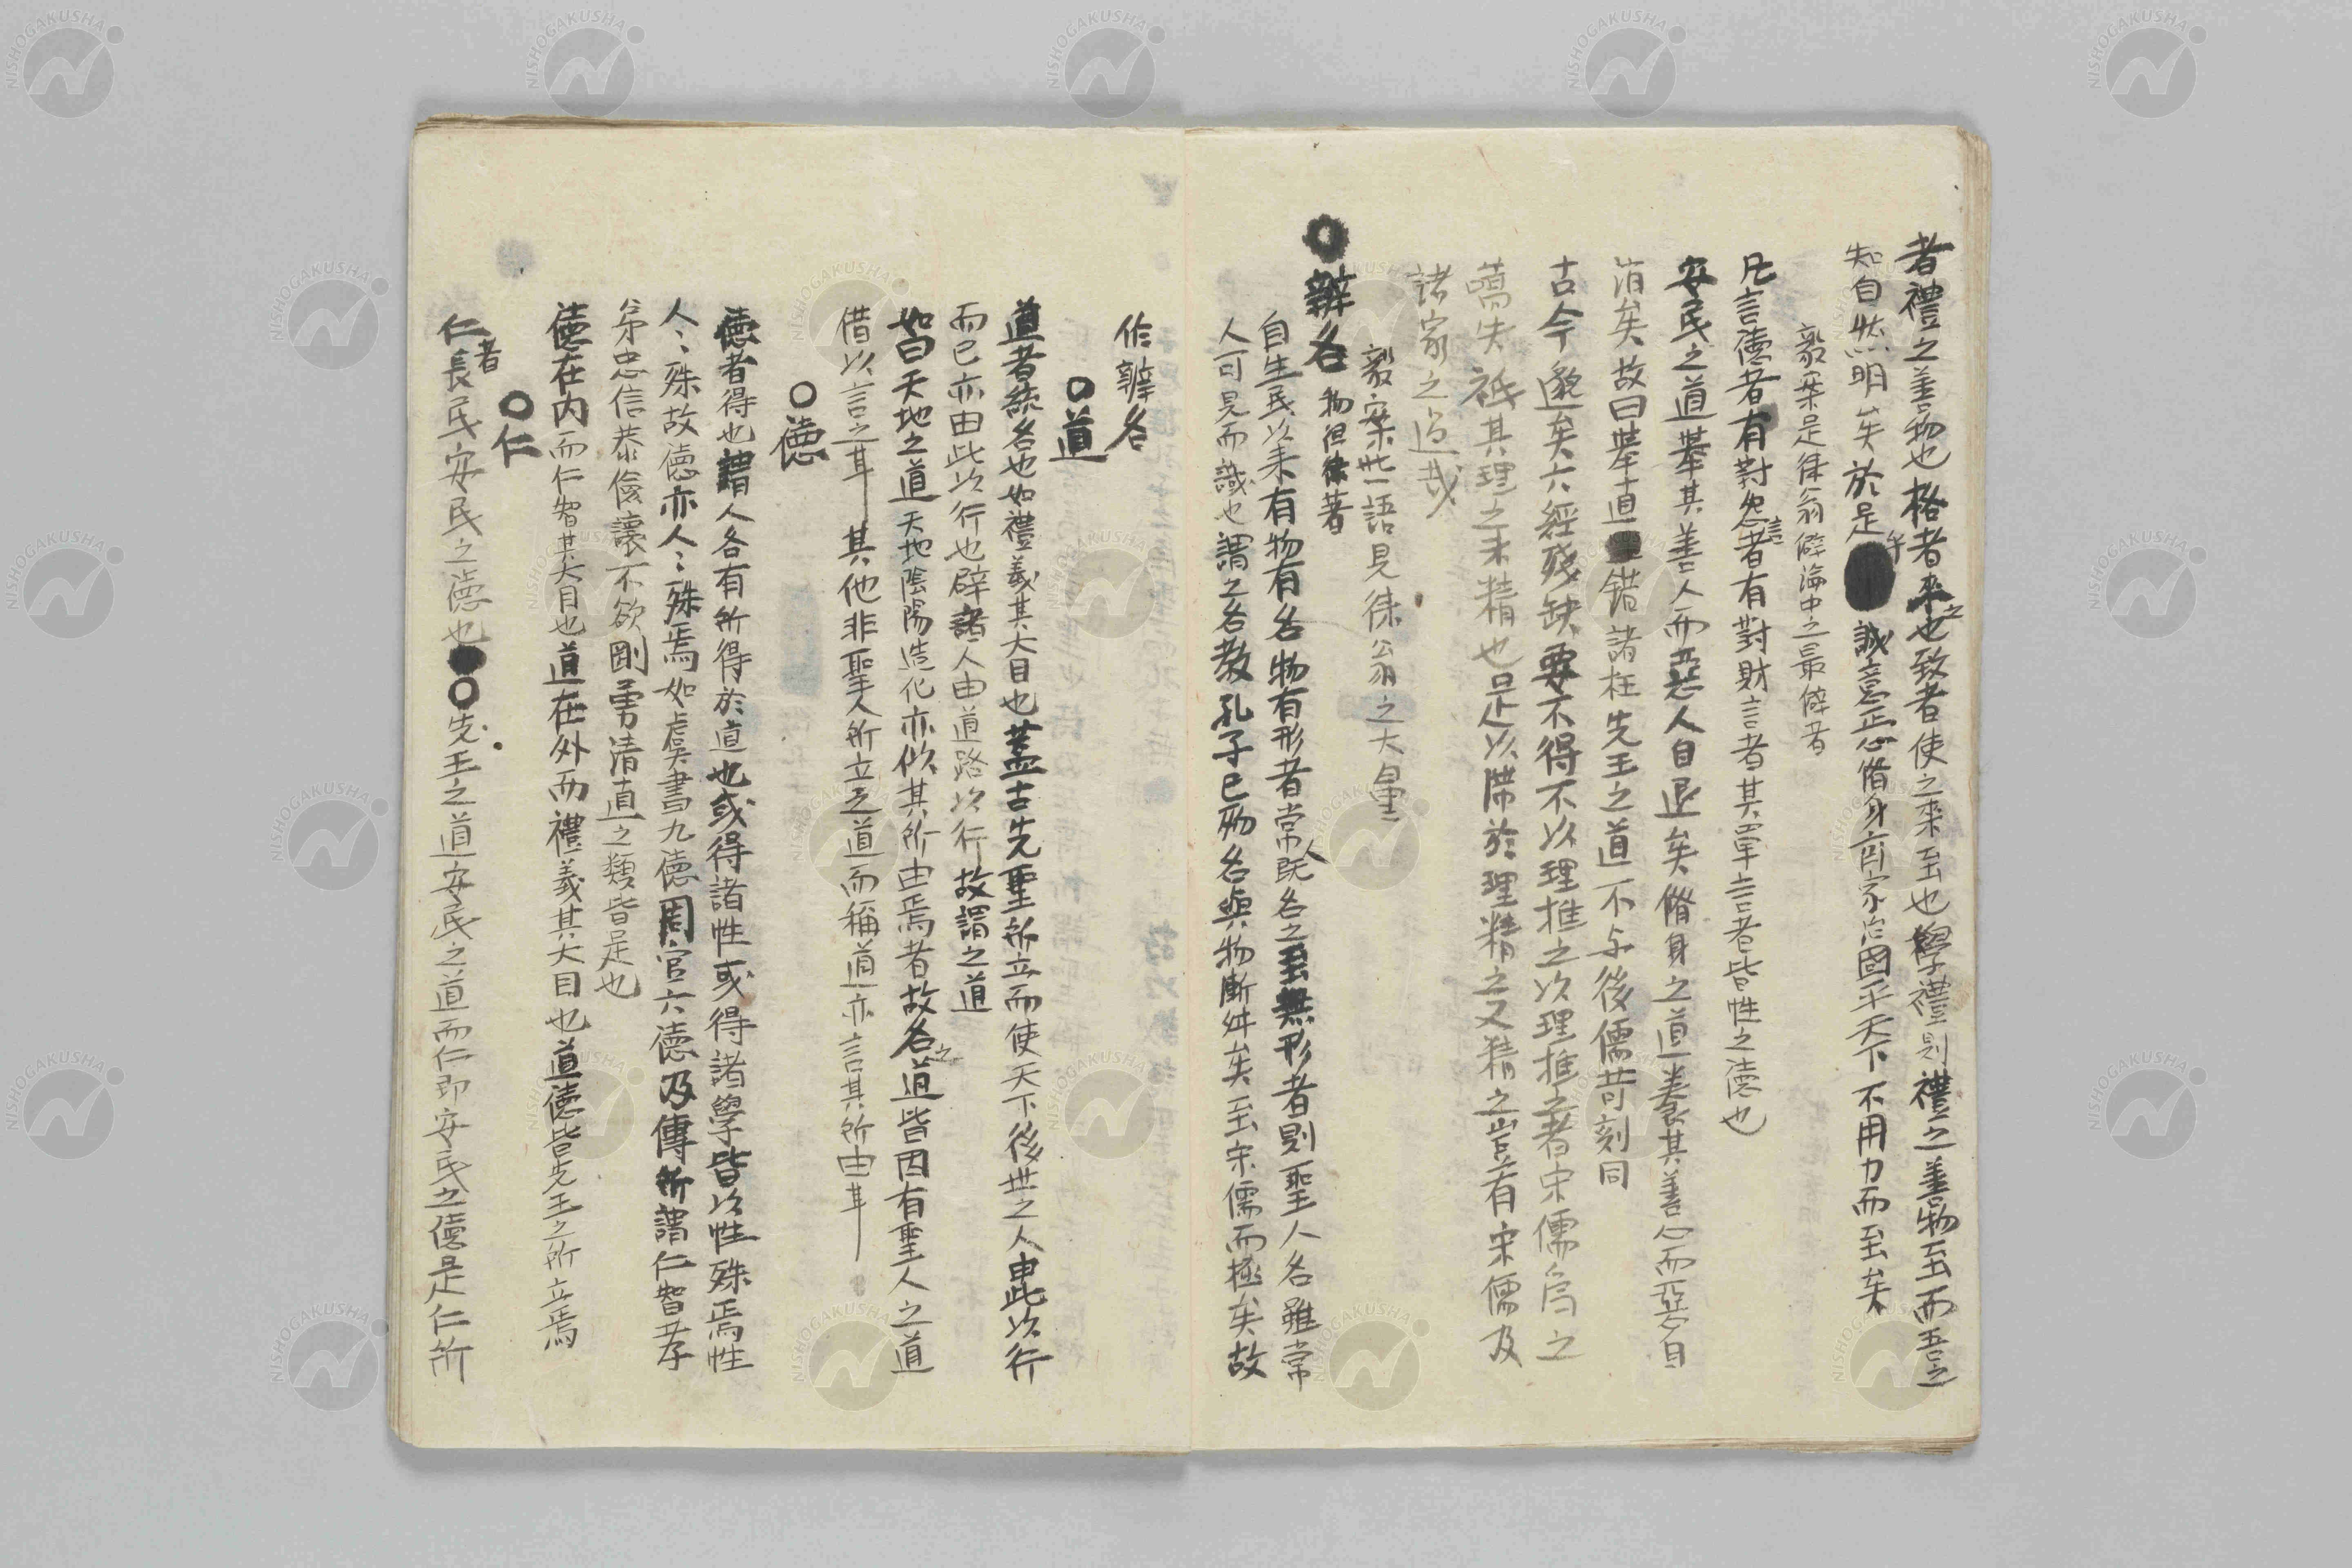 者禮之善物也格者来也致者使之來至也學禮則禮之善物至而吾之
知自然明矣於是乎誠意正心脩身齊家治國平天下不用力而至矣
毅案是徠翁僻論中之最僻者
凡言德者有對怨言者有對財言者其單言者皆性之德也
安民之道舉其善人而惡人自退矣脩身之道養其善心而惡自
消矣故曰舉直錯諸枉先王之道不与後儒苛刻同
古今邈矣六經殘缺要不得不以理推之以理推之者宋儒為之
嚆矢祇其理之未精也是以滞於理精之又精之豈有宋儒及
諸家之過哉
毅案此一語見徠翁之大量
辨名 物徂徠著
自生民以来有物有名物有形者常人既名之至無形者則聖人名雖常
人可見而識也謂之名教孔子已歿名與物漸舛矣至宋儒而極矣故
作辨名
道
道者統名也如禮義其大目也蓋古先聖所立而使天下後世之人由此以行
而已亦由此以行也辟諸人由道路以行故謂之道
如曰天地之道天地陰陽造化亦似其所由焉者故名之道皆因有聖人之道
借以言之耳其他非聖人所立之道而稱道亦言其所由耳
德
德者得也謂人各有所得於道也或得諸性或得諸學皆以性殊焉性
人〻殊故德亦人〻殊焉如虞書九德周官六德及傳所謂仁智孝
弟忠信恭儉讓不欲剛勇清直之類皆是也
德在内而仁智其大目也道在外而禮義其大目也道德皆先王之所立焉
仁
仁者長民安民之德也先王之道安民之道而仁即安民之德是仁所
NISHOGAKUSHA